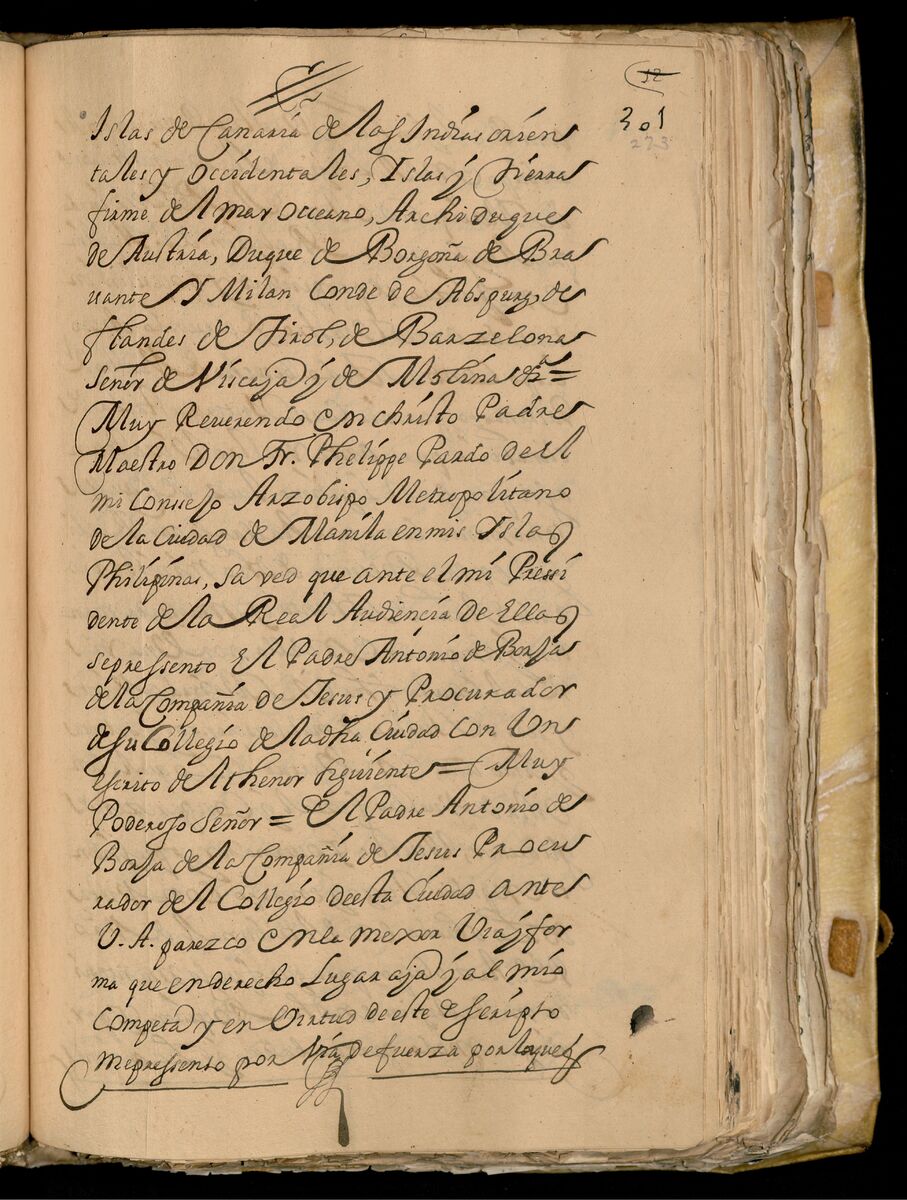 12
301
273
Islas de Canaria de las Indias orien
tales y occidentales, Islas y tierra
firme del mar occeano, Archiduque
de Austria, Duque de Borgoña de Bra
uante Y Milan Conde de Abspurg, de
flandes de Tirol, de Barzelona
Señor de Viscaja y de Molina &ª =
Muy Reverendo en christo Padre
Maestro Don Fr. Phelippe Pardo de el
mi Consejo Arzobispo Metropolitano
de la Ciudad de Manila en mis Yslas
Philipinas, saved que ante el mi Pressi
dente de la Real Audiencia de Ellas
sepressento El Padre Antonio de Borja
de la Compañia de Jesus y Procurador
de su Collegio de la dha Ciudad con Un
escrito del thenor siguiente = Muy
Poderoso Señor = El Padre Antonio de
Borja de la Compañia de Jesus Procu
rador del Collegio de esta Ciudad ante
V. A. parezco en la mexor Via y for
ma que en derecho Lugar aja y al mio
Competa y en Virtud de este Escripto
mepressento por Via de fuerza por la que